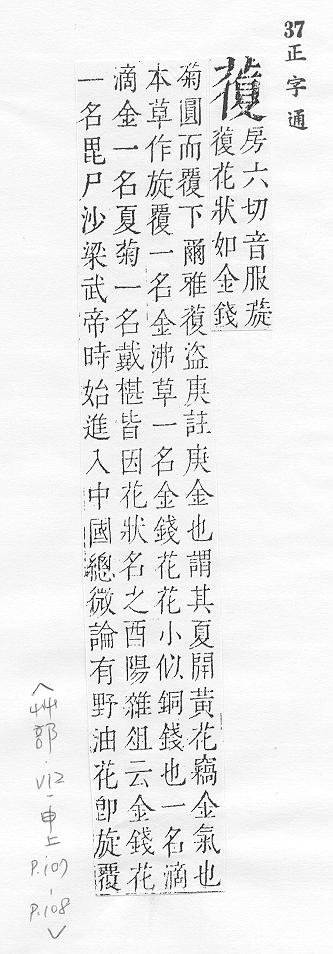 37正字通
蕧
房六切音服蔙
蕧花狀如金錢
菊圓而覆下爾雅蕧盜庚註庚金也謂其夏開黃花竊金氣也
本草作旋覆一名金沸草一名金錢花花小似銅錢也一名滴
滴金一名夏菊一名戴椹皆因花狀名之酉陽雜俎云金錢花
一名毘尸沙梁武帝時始進入中國總微論有野油花卽旋覆
<艸部.V12-申上P.107-P.108>